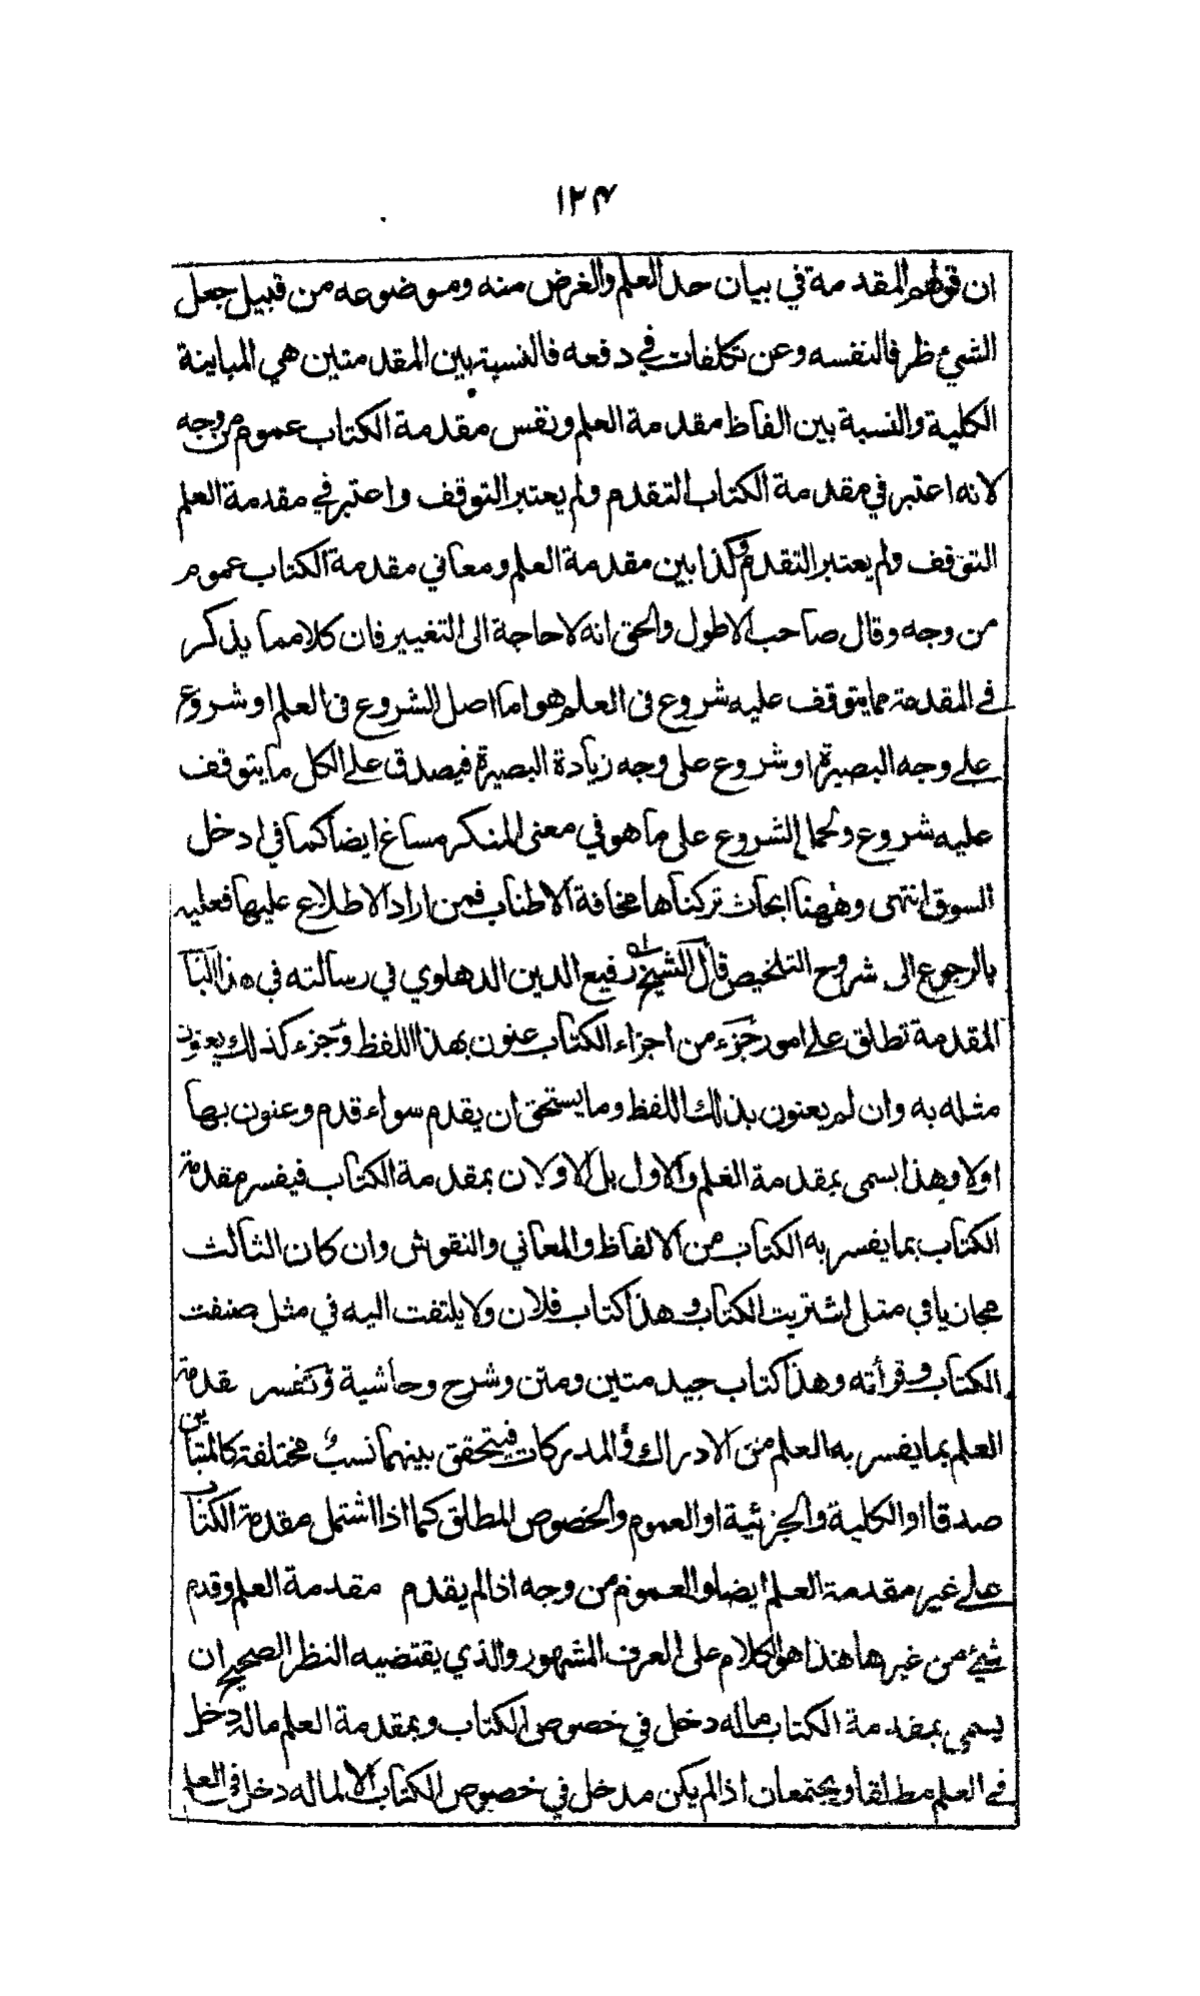 ١٢٤
ان قولهم المقدمة في بيان حد العلم والغرض منه وموضوعه من قبيل جعل
الشيء ظرفا لنفسه وعن تكلفات في دفعه فالنسبة بين المقدمتين هي المباينة
الكلية والنسبة بين الفاظ مقدمة العلم ونفس مقدمة الكتاب عموم من وجه
لانه اعتبر في مقدمة الكتاب التقدم ولم يعتبر التوقف واعتبر في مقدمة العلم
التوقف ولم يعتبر التقدم وكذا بين مقدمة العلم ومعاني مقدمة الكتاب عموم
من وجه وقال صاحب الاطول والحق انه لا حاجة الى التغيير فان كلا مما يذكر
في المقدمة مما يتوقف عليه شروع في العلم هو اما اصل الشروع في العلم او شروع
على وجه البصيرة او شروع على وجه زيادة البصيرة فيصدق على الكل ما يتوقف
عليه شروع ولحمل الشروع على ما هو في معنى المنكر مساغ ايضا كما في ادخل
السوق انتهى وههنا ابحاث تركناها مخافة الاطناب فمن اراد الاطلاع عليها فعليه
بالرجوع الى شروح التلخيص قال الشيخ رفيع الدين الدهلوي في رسالته في هذا البا
المقدمة تطلق على امور جزء من اجزاء الكتاب عنون بهذا اللفظ وجزء كذلك يعنون
مثله به وان لم يعنون بذلك اللفظ وما يستحق ان يقدم سواء قدم وعنون بها
اولا وهذا يسمى بمقدمة العلم والاول بل الاولان بمقدمة الكتاب فيفسر مقدمة
الكتاب بما يفسر به الكتاب من الالفاظ والمعاني والنقوش وان كان الثالث
مجازيا في مثل اشتريت الكتاب وهذا كتاب فلان ولا يلتفت اليه في مثل صنفت
الكتاب وقرأته وهذا كتاب جيد متين ومتن وشرح وحاشية وتفسر مقدمة
العلم بما يفسر به العلم من الادراك والمدركات فيتحقق بينهما نسب مختلفة كالتباين
صدقا او الكلية والجزئية او العموم والخصوص المطلق كما اذا اشتمل مقدمة الكتاب
على غير مقدمة العلم ايضا والعموم من وجه اذا لم يقدم مقدمة العلم وقدم
شيء من غيرها هذا هو الكلام على العرف المشهور والذي يقتضيه النظر الصحيح ان
يسمى بمقدمة الكتاب ماله دخل في خصوص الكتاب وبمقدمة العلم ماله دخل
في العلم مطلقا ويجتمعان اذا لم يكن مدخل في خصوص الكتاب الا لما له دخل في العلم